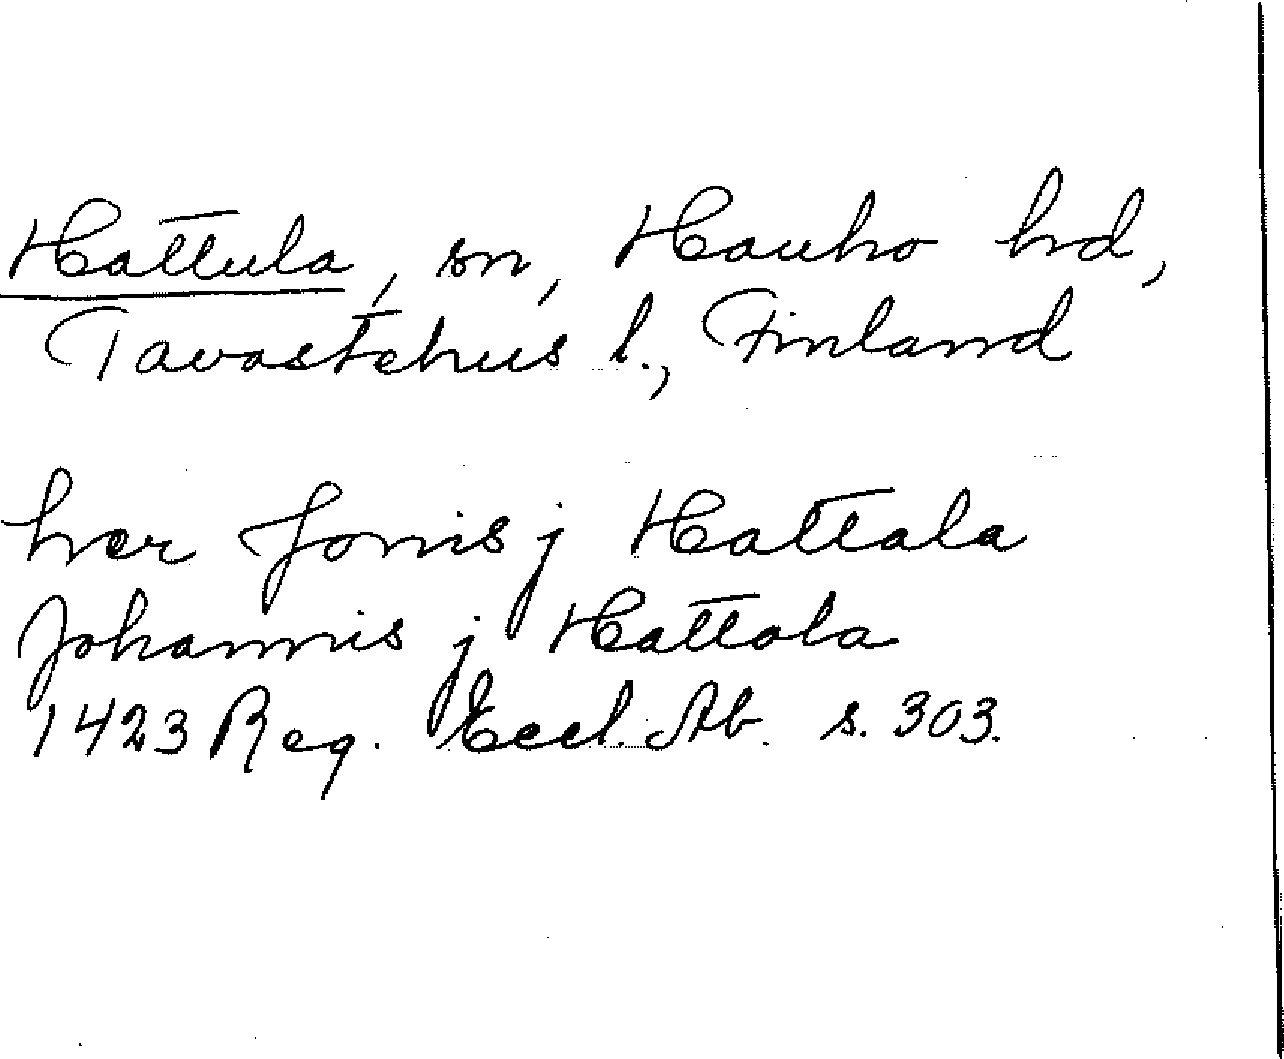 Hattula, sn, Hauho hd,
Tavastehus l., Finland
her Jonis j Hattala
Johannis j Hattola
1423 Reg. Eccl. Ab. s. 303.